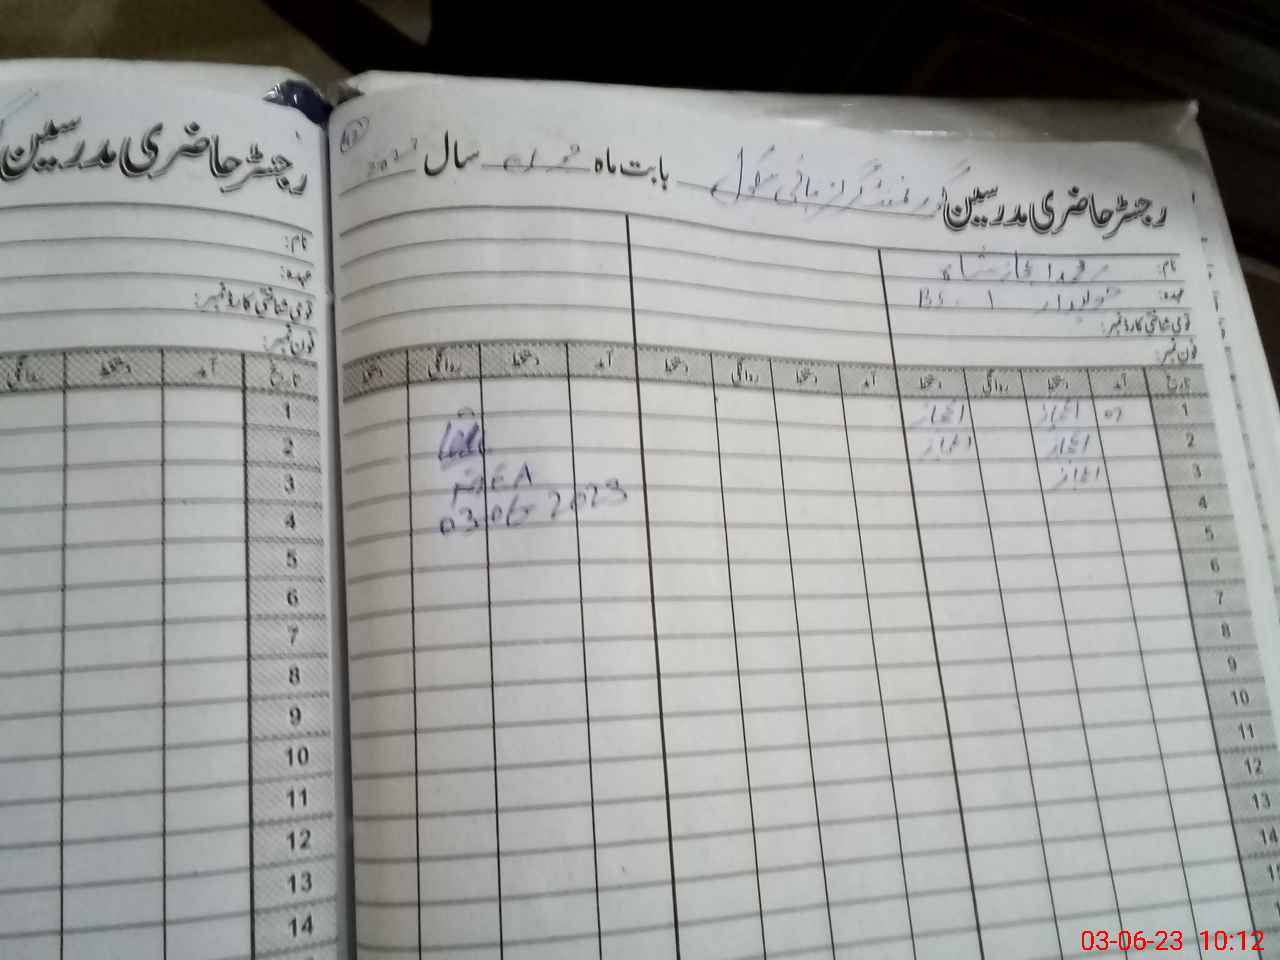 رجسٹر حاضری مدرسین گورنمنٹ گرلز ہائی سکول بابت ماہ جون سال 2023
نام: محمد اعجاز شاہ
عہدہ: BS-1
قومی شناختی کارڈ نمبر:
فون نمبر:
تاریخ آمد دستخط روانگی دستخط آمد دستخط روانگی دستخط آمد دستخط روانگی دستخط
1 07 اعجاز اعجاز
2 اعجاز اعجاز
3 اعجاز
4
5
6
7
8
9
10
11
12
13
14
03-06-2023
رجسٹر حاضری مدرسین
نام:
عہدہ:
قومی شناختی کارڈ نمبر:
فون نمبر:
تاریخ آمد دستخط روانگی
1
2
3
4
5
6
7
8
9
10
11
12
13
14
03-06-23 10:12